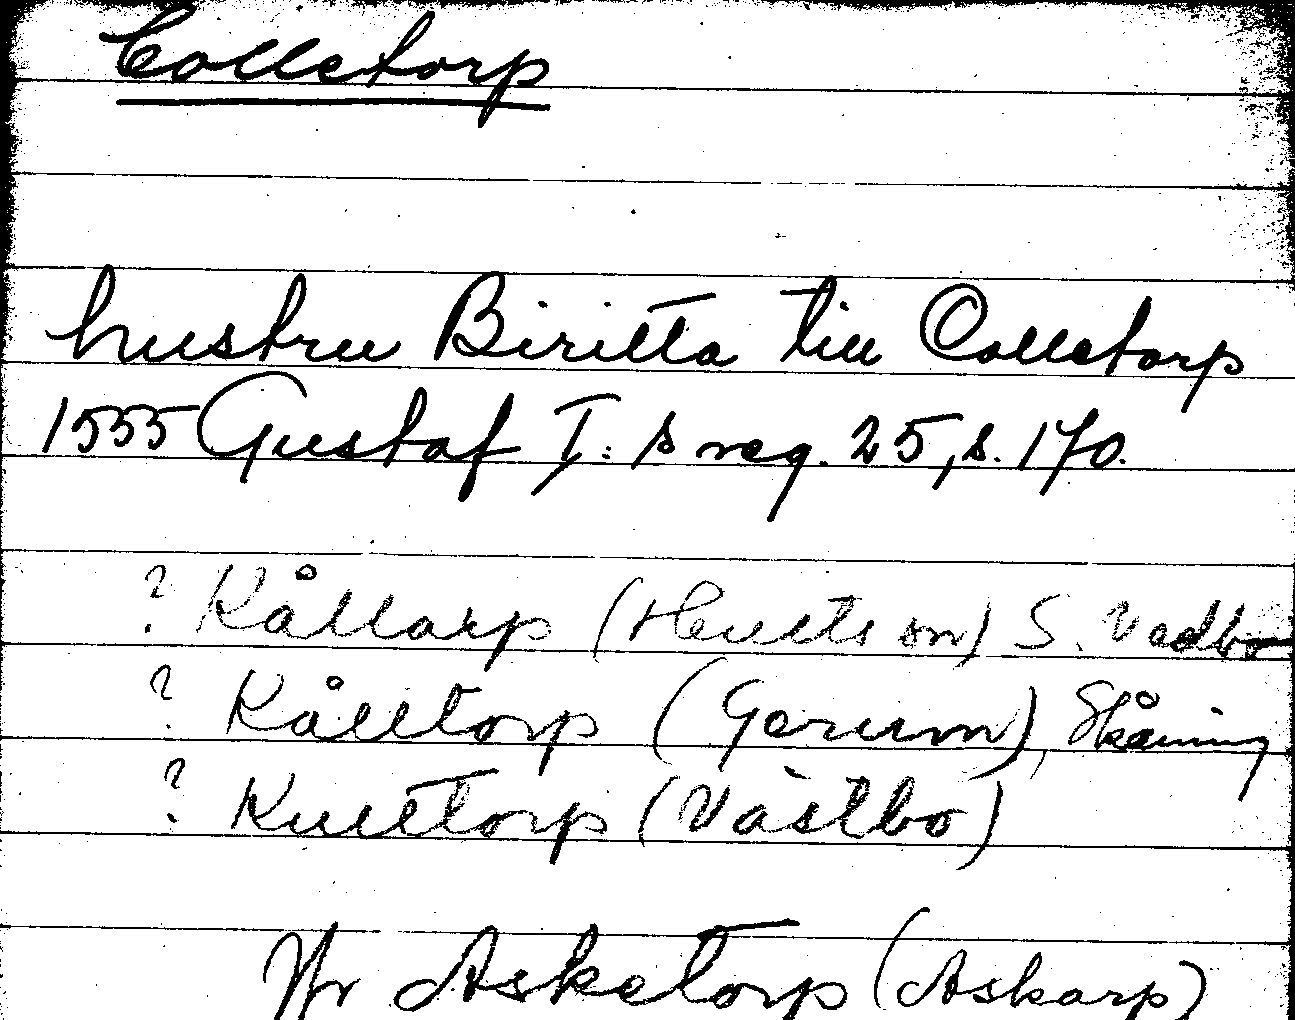 Colletorp
hustru Biritta till Colletorp
1555 Gustaf I: s reg. 25, s. 170.
? Kållarp (Hultsjön) S. Vedbo
? Kålltorp (Gerum), Skåning
? Kulltorp (Västbo)
Nr Asketorp (Askarp)